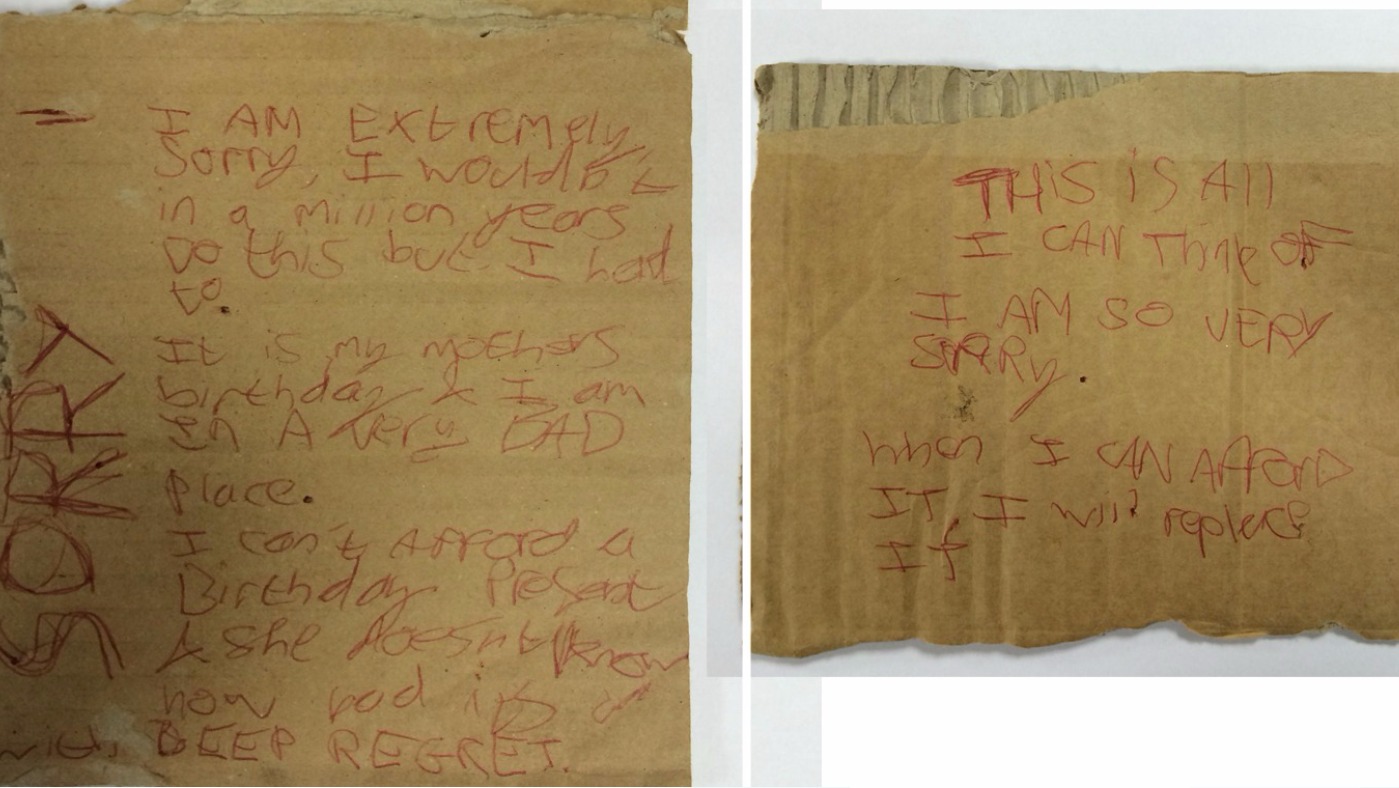 SORRY
I AM Extremely
Sorry, I wouldn't
in a million years
Do this but I had
to.
It is my mothers
birthday & I am
in A very BAD
place.
I can't Afford a
Birthday Present
& she doesn't know
how bad it is
with DEEP REGRET.
THIS iS All
I CAN Think OF
I AM SO VERY
SORRY.
when I CAN AffORD
IT, I will replace
It